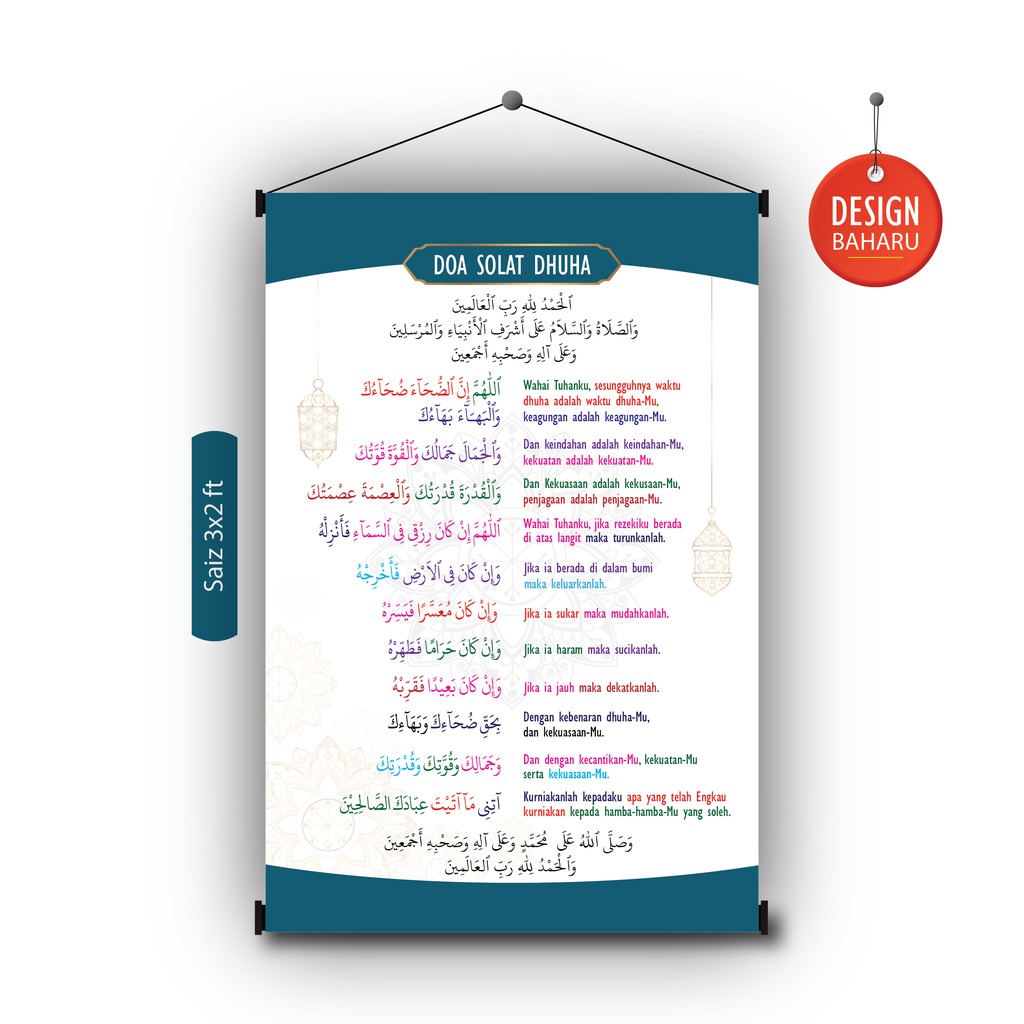 DESIGN
BAHARU
DOA SOLAT DHUHA
ٱلْحَمْدُ لِلّٰهِ رَبِّ ٱلْعَالَمِينَ
وَٱلصَّلَاةُ وَٱلسَّلَامُ عَلَى أَشْرَفِ ٱلْأَنْبِيَاءِ وَٱلْمُرْسَلِينَ
وَعَلَى آلِهِ وَصَحْبِهِ أَجْمَعِينَ
ٱللّٰهُمَّ إِنَّ ٱلضُّحَآءَ ضُحَاءُكَ
وَٱلْبَهَآءَ بَهَاءُكَ
Wahai Tuhanku, sesungguhnya waktu
dhuha adalah waktu dhuha-Mu,
keagungan adalah keagungan-Mu.
وَٱلْجَمَالَ جَمَالُكَ وَٱلْقُوَّةَ قُوَّتُكَ
Dan keindahan adalah keindahan-Mu,
kekuatan adalah kekuatan-Mu.
وَٱلْقُدْرَةَ قُدْرَتُكَ وَٱلْعِصْمَةَ عِصْمَتُكَ
Dan Kekuasaan adalah kekusaan-Mu,
penjagaan adalah penjagaan-Mu.
ٱللّٰهُمَّ إِنْ كَانَ رِزْقِى فِى ٱلسَّمَآءِ فَأَنْزِلْهُ
Wahai Tuhanku, jika rezekiku berada
di atas langit maka turunkanlah.
وَإِنْ كَانَ فِى ٱلْأَرْضِ فَأَخْرِجْهُ
Jika ia berada di dalam bumi
maka keluarkanlah.
وَإِنْ كَانَ مُعَسَّرًا فَيَسِّرْهُ
Jika ia sukar maka mudahkanlah.
وَإِنْ كَانَ حَرَامًا فَطَهِّرْهُ
Jika ia haram maka sucikanlah.
وَإِنْ كَانَ بَعِيْدًا فَقَرِّبْهُ
Jika ia jauh maka dekatkanlah.
بِحَقِّ ضُحَآءِكَ وَبَهَآءِكَ
Dengan kebenaran dhuha-Mu,
dan kekuasaan-Mu.
وَجَمَالِكَ وَقُوَّتِكَ وَقُدْرَتِكَ
Dan dengan kecantikan-Mu, kekuatan-Mu
serta kekuasaan-Mu.
آتِنِى مَآ آتَيْتَ عِبَادَكَ الصَّالِحِيْنَ
Kurniakanlah kepadaku apa yang telah Engkau
kurniakan kepada hamba-hamba-Mu yang soleh.
وَصَلَّى ٱللّٰهُ عَلَى مُحَمَّدٍ وَعَلَى آلِهِ وَصَحْبِهِ أَجْمَعِينَ
وَٱلْحَمْدُ لِلّٰهِ رَبِّ ٱلْعَالَمِينَ
Saiz 3x2 ft